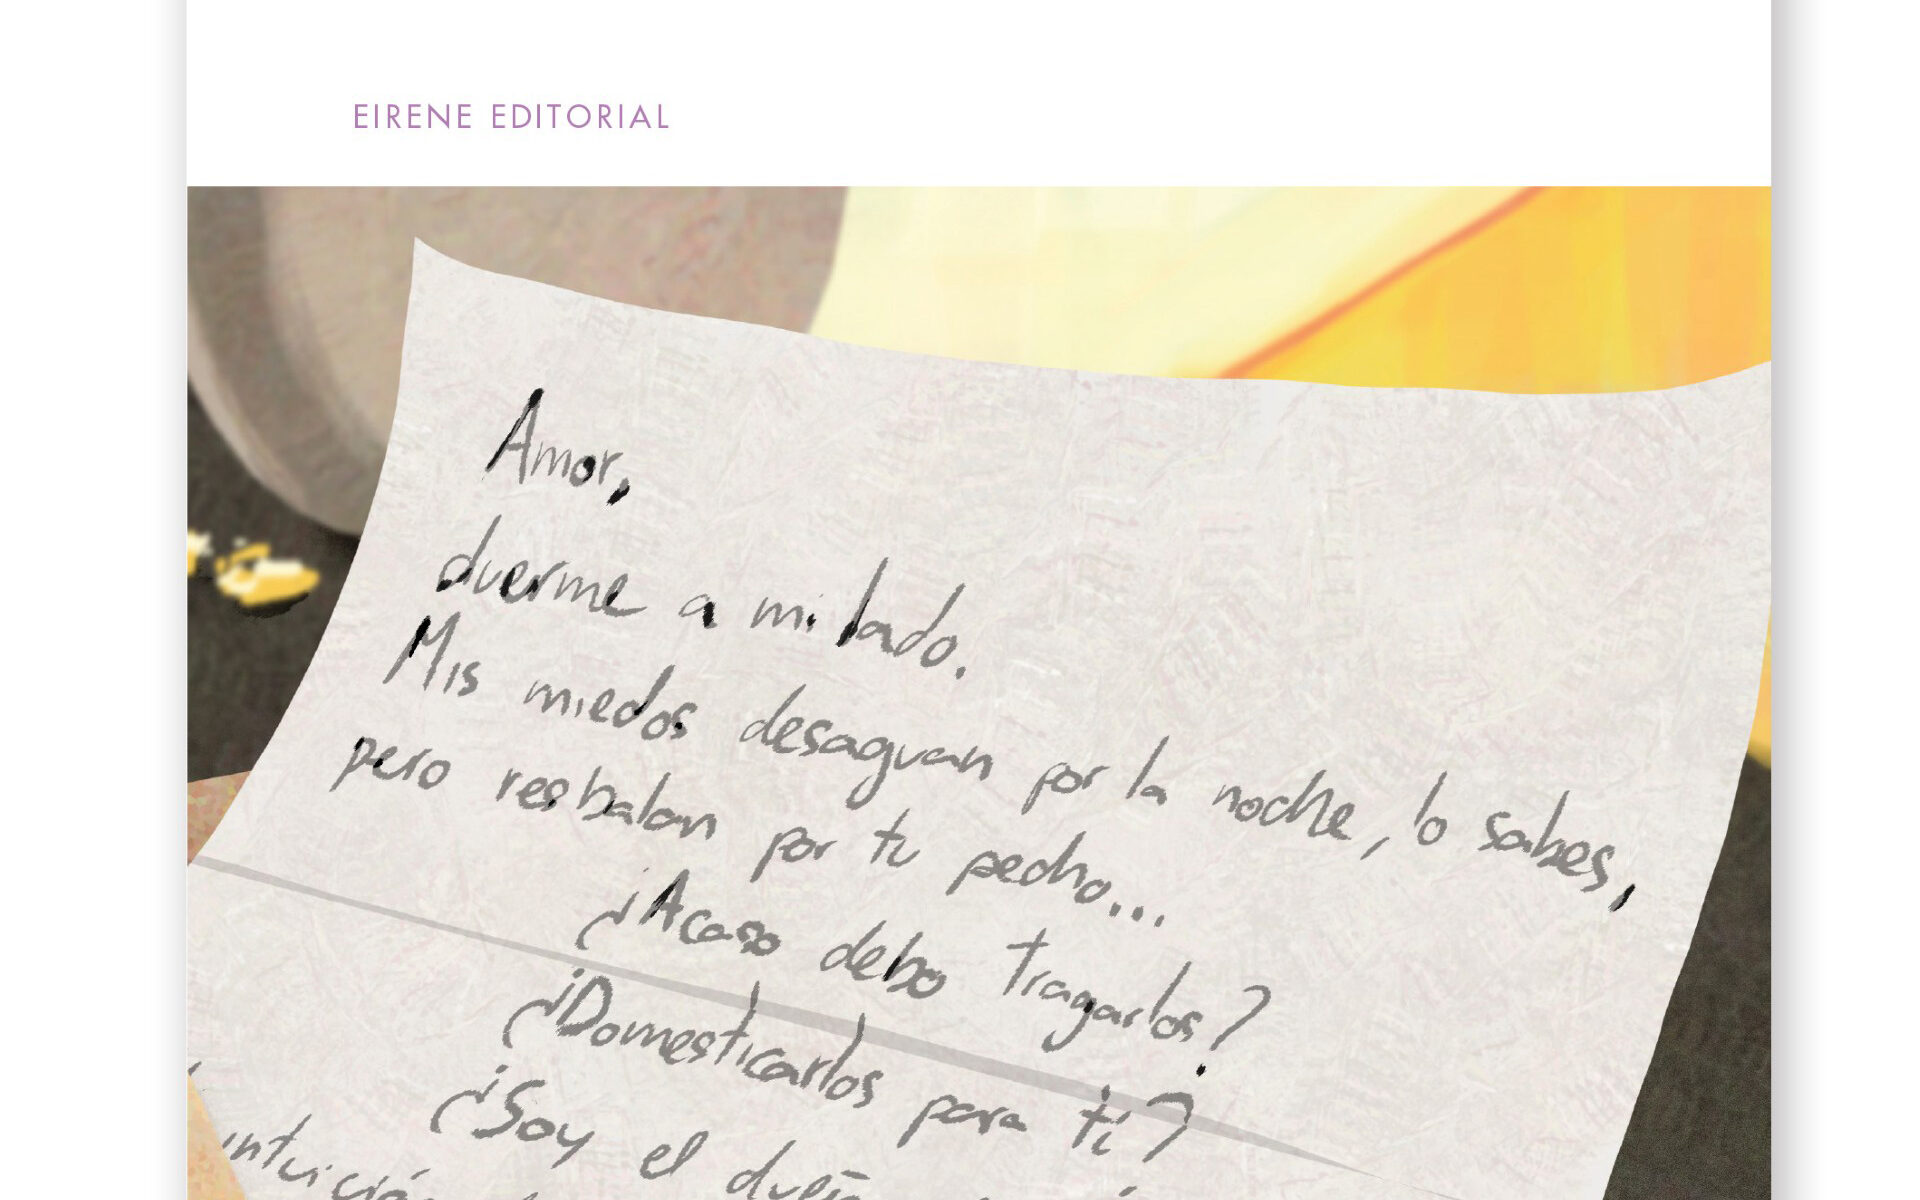 EIRENE EDITORIAL
Amor,
duerme a mi lado.
Mis miedos desaguan por la noche, lo sabes,
pero resbalan por tu pecho...
¿Acaso debo tragarlos?
¿Domesticarlos para tí?
¿Soy el
intuición